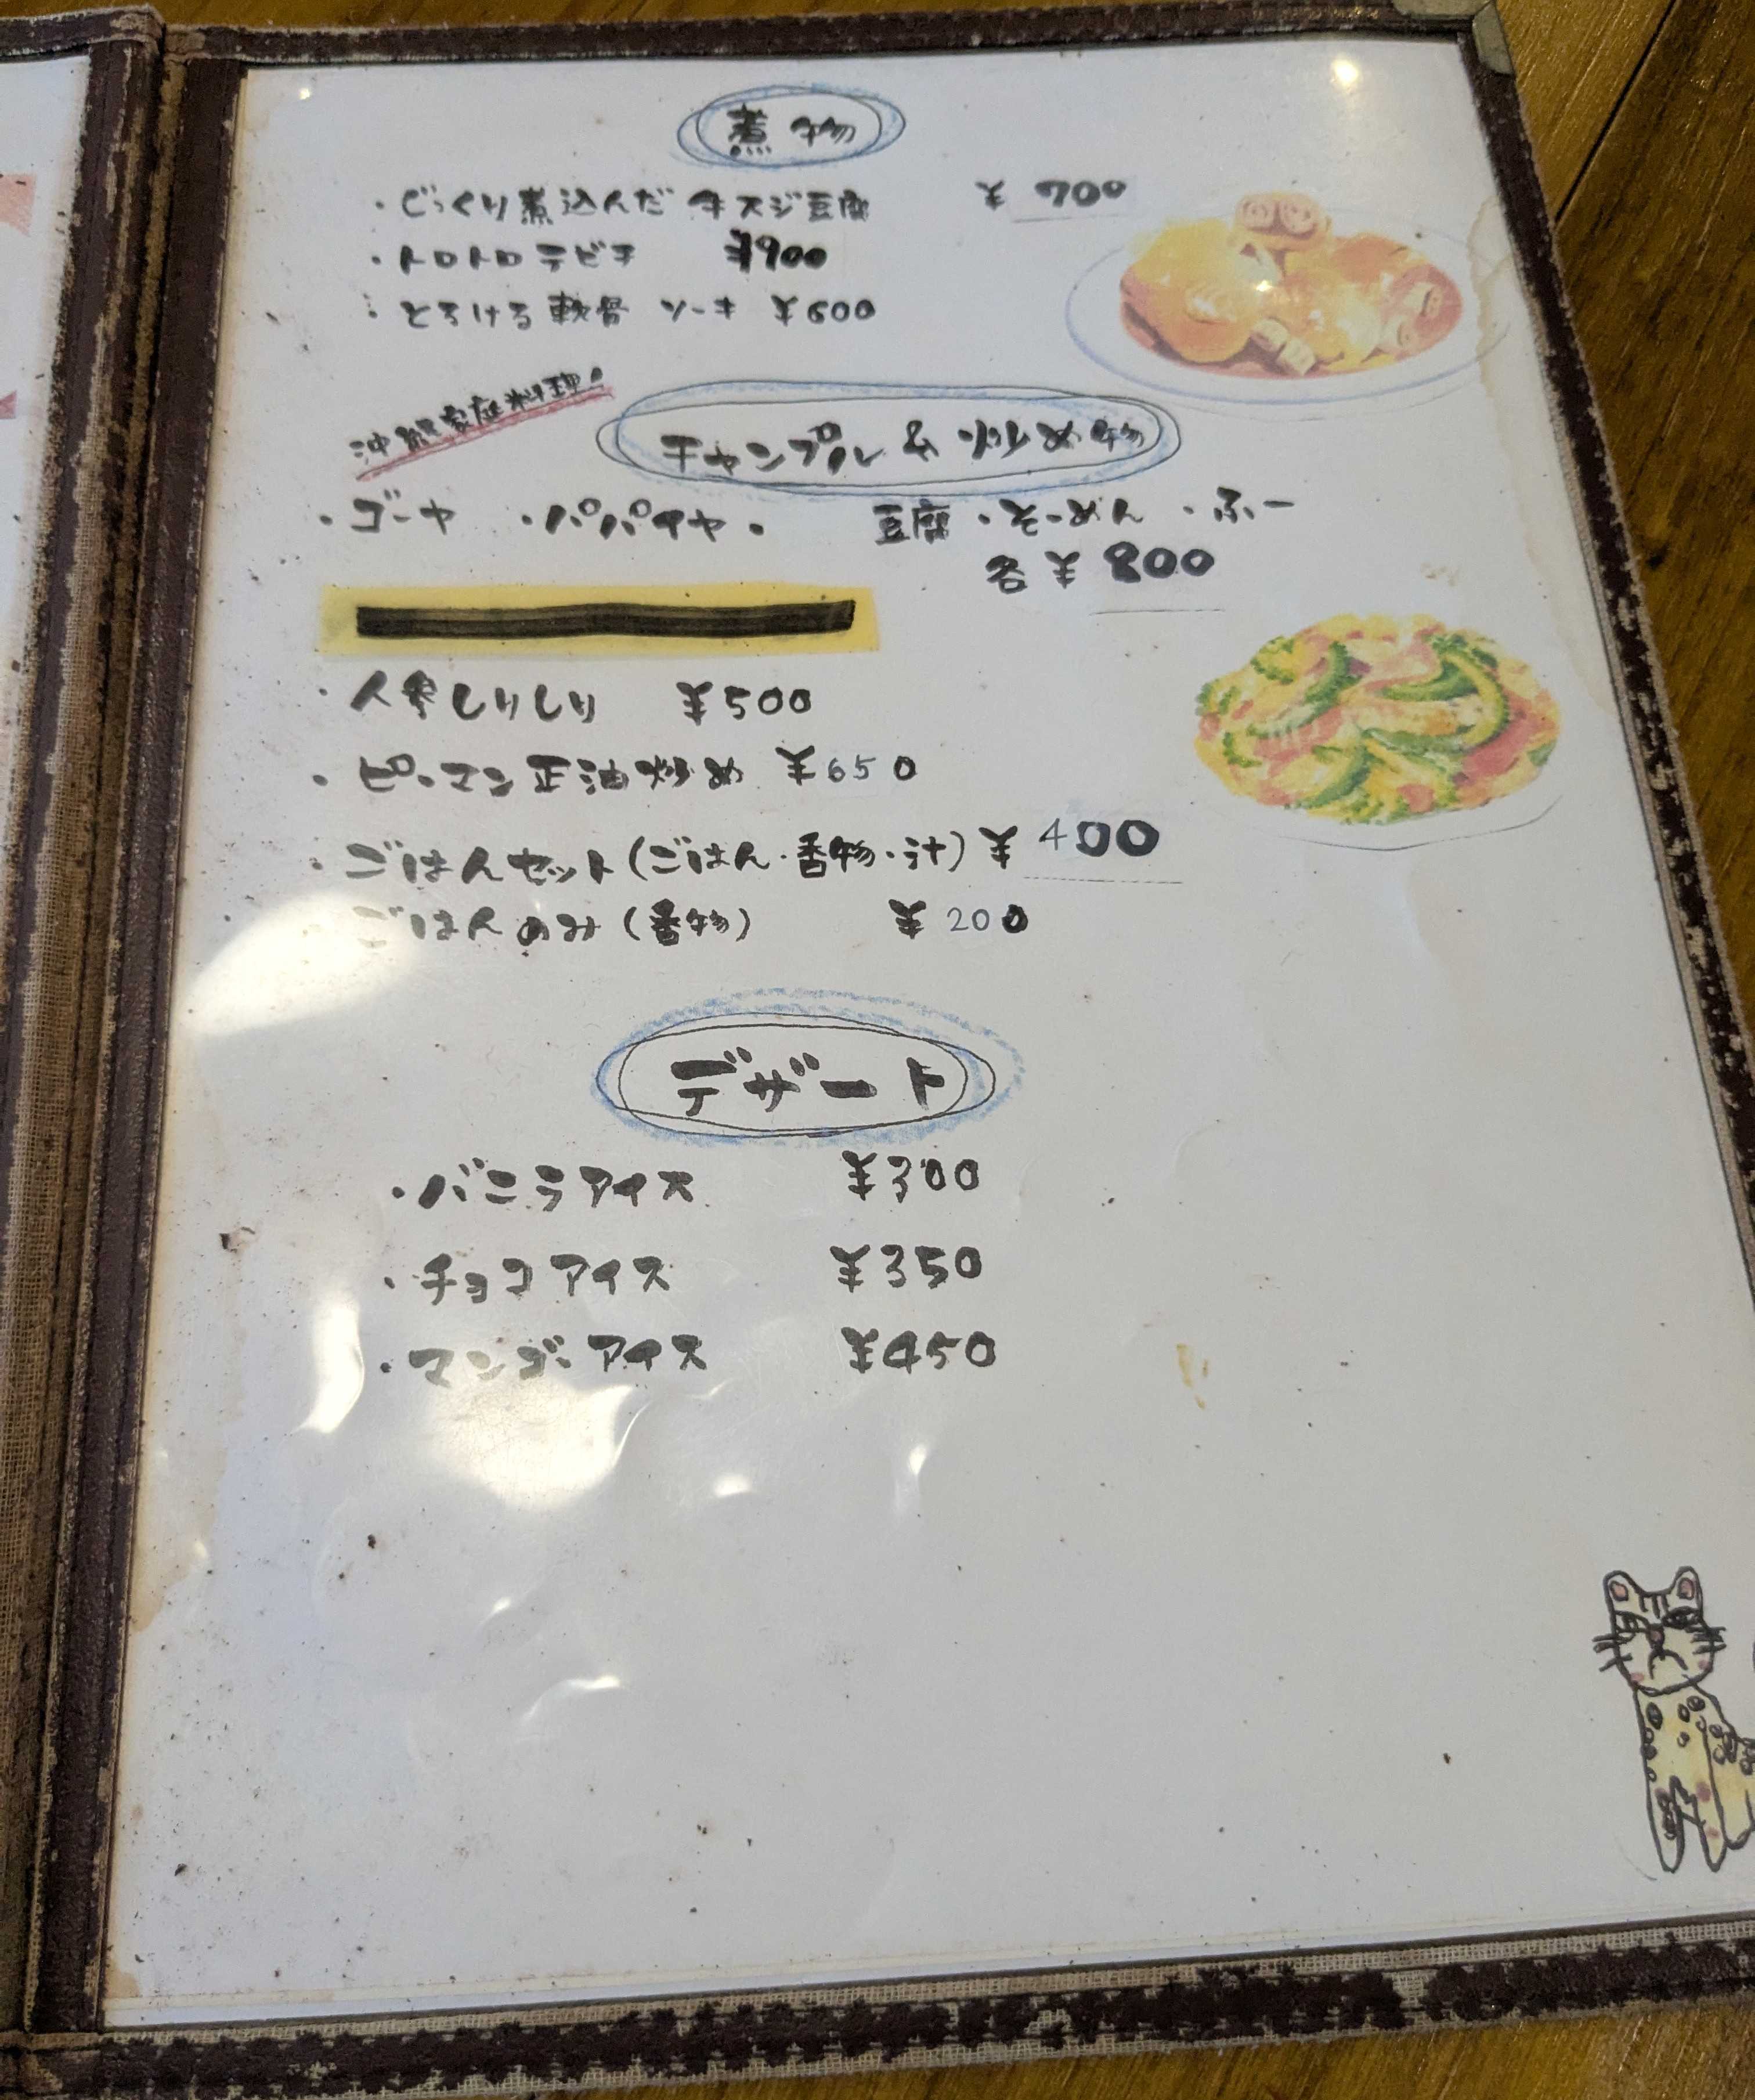 煮物
・じっくり煮込んだ 牛スジ豆腐 ¥700
・トロトロテビチ ¥900
・とろける軟骨 ソーキ ¥600
沖縄家庭料理!
チャンプル & 炒め物
・ゴーヤ ・パパイヤ・ 豆腐・そーめん ・ふー
各¥800
・人参しりしり ¥500
・ピーマン正油炒め ¥650
・ごはんセット(ごはん・香物・汁) ¥400
ごはんのみ(香物) ¥200
デザート
・バニラアイス ¥300
・チョコアイス ¥350
・マンゴーアイス ¥450